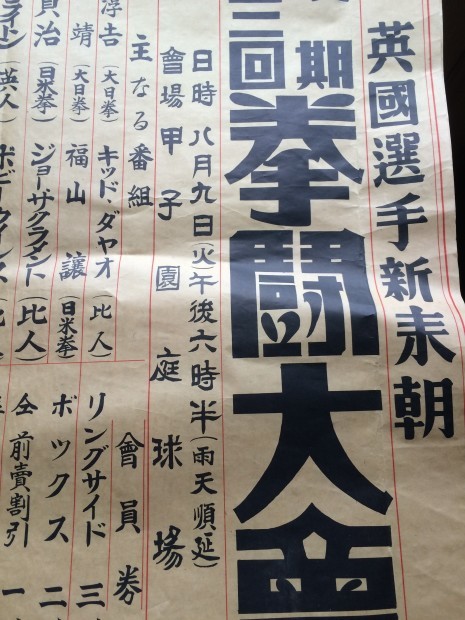 英國選手新来朝
期
三回
拳闘大
日時 八月九日(火)午後六時半(雨天順延)
會場甲子園庭球場
主なる番組
會員券
(大日拳) キッド、ダヤオ(比人)
リングサイド 三
靖(大日拳) 福山 譲(日米拳)
ボックス 二
治(日米拳) ジョーサクラメント(比人)
仝 前賣割引 一
イトン(英人)